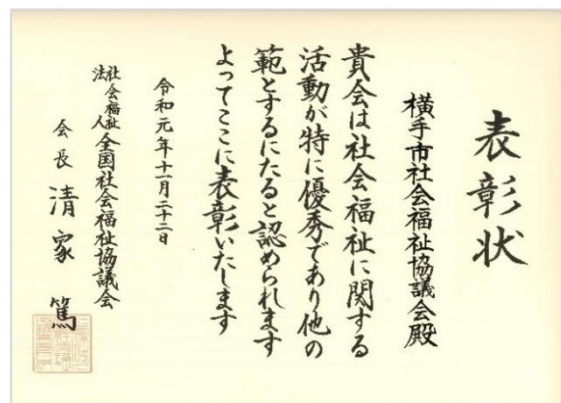 表彰状
横手市社会福祉協議会殿
貴会は社会福祉に関する
活動が特に優秀であり他の
範とするにたると認められます
よってここに表彰いたします
令和元年十一月二十二日
社会福祉法人全国社会福祉協議会
会長 清家 篤